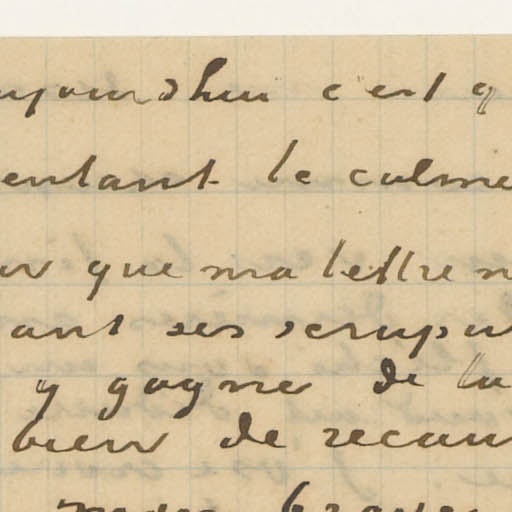 ujourdhui c'est q
entant le calme
ur que ma lettre n
ant ses scrupu
y gagner de la
bien de recau